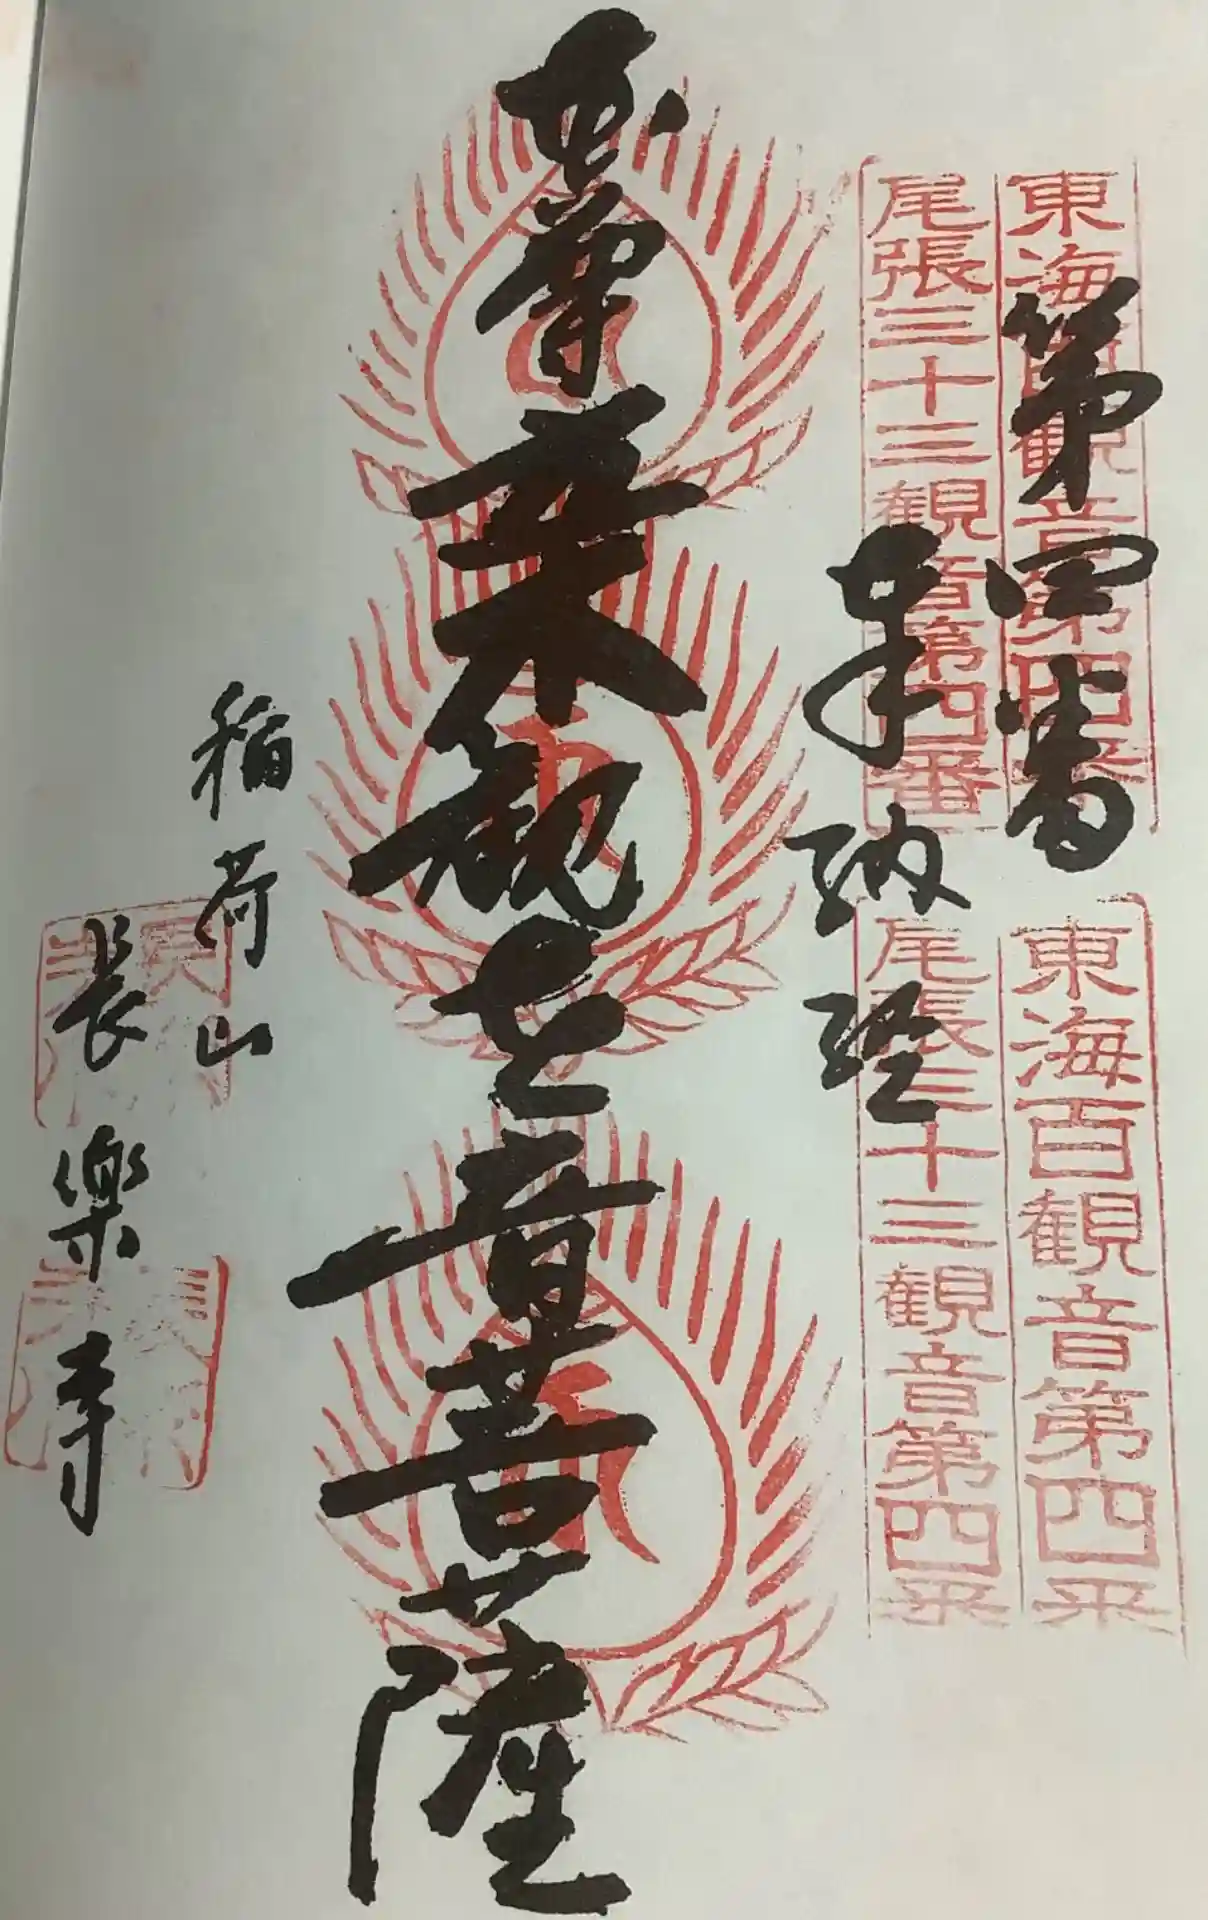 東海百観音第四番
尾張三十三観音第四番
東海百観音第四番
尾張三十三観音第四番
第四番
奉納経
観世音菩薩
稲荷山
長楽寺